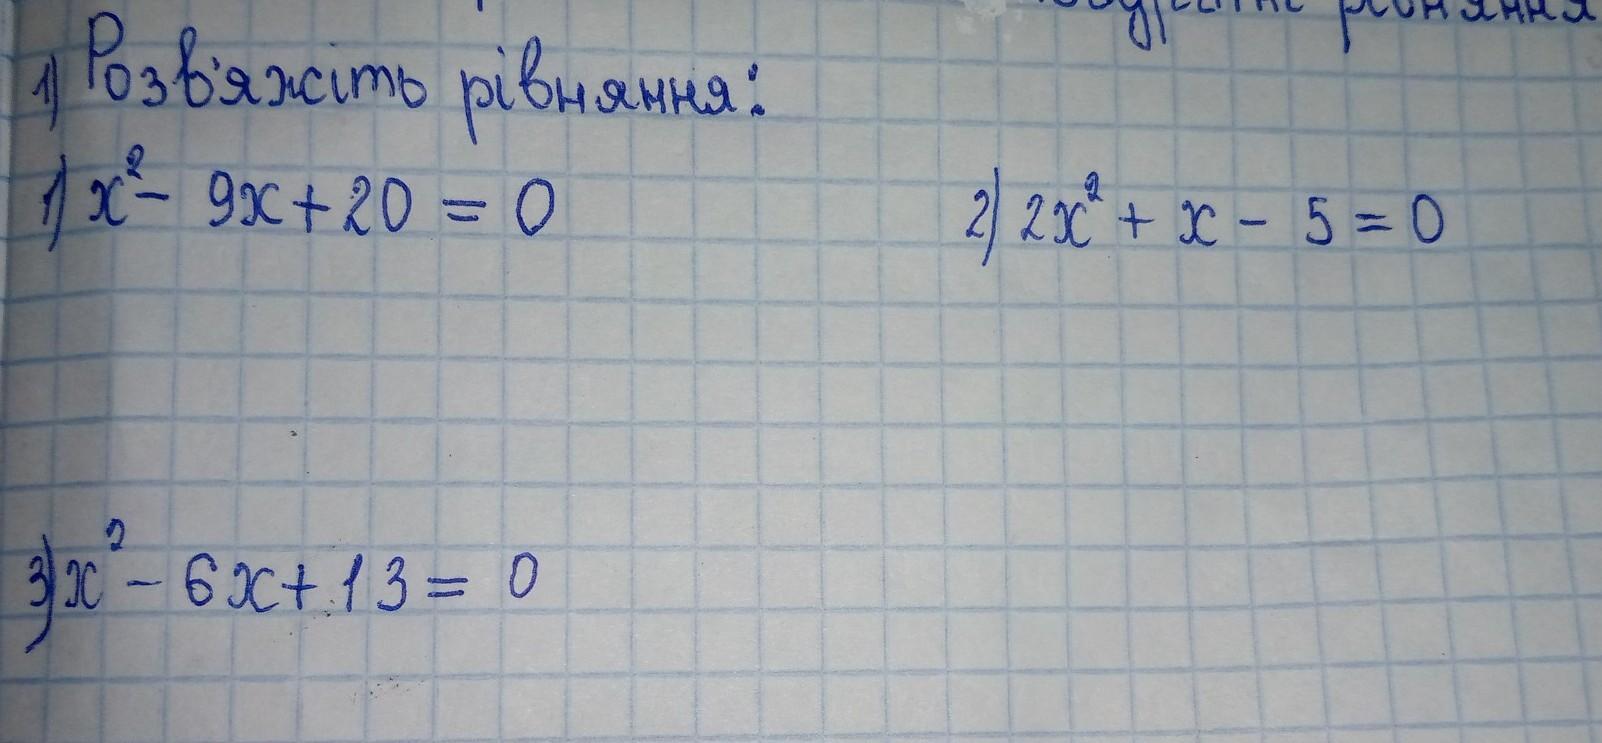 рівняння
1) Розв'яжіть рівняння:
1) x² - 9x + 20 = 0
2) 2x² + x - 5 = 0
3) x² - 6x + 13 = 0